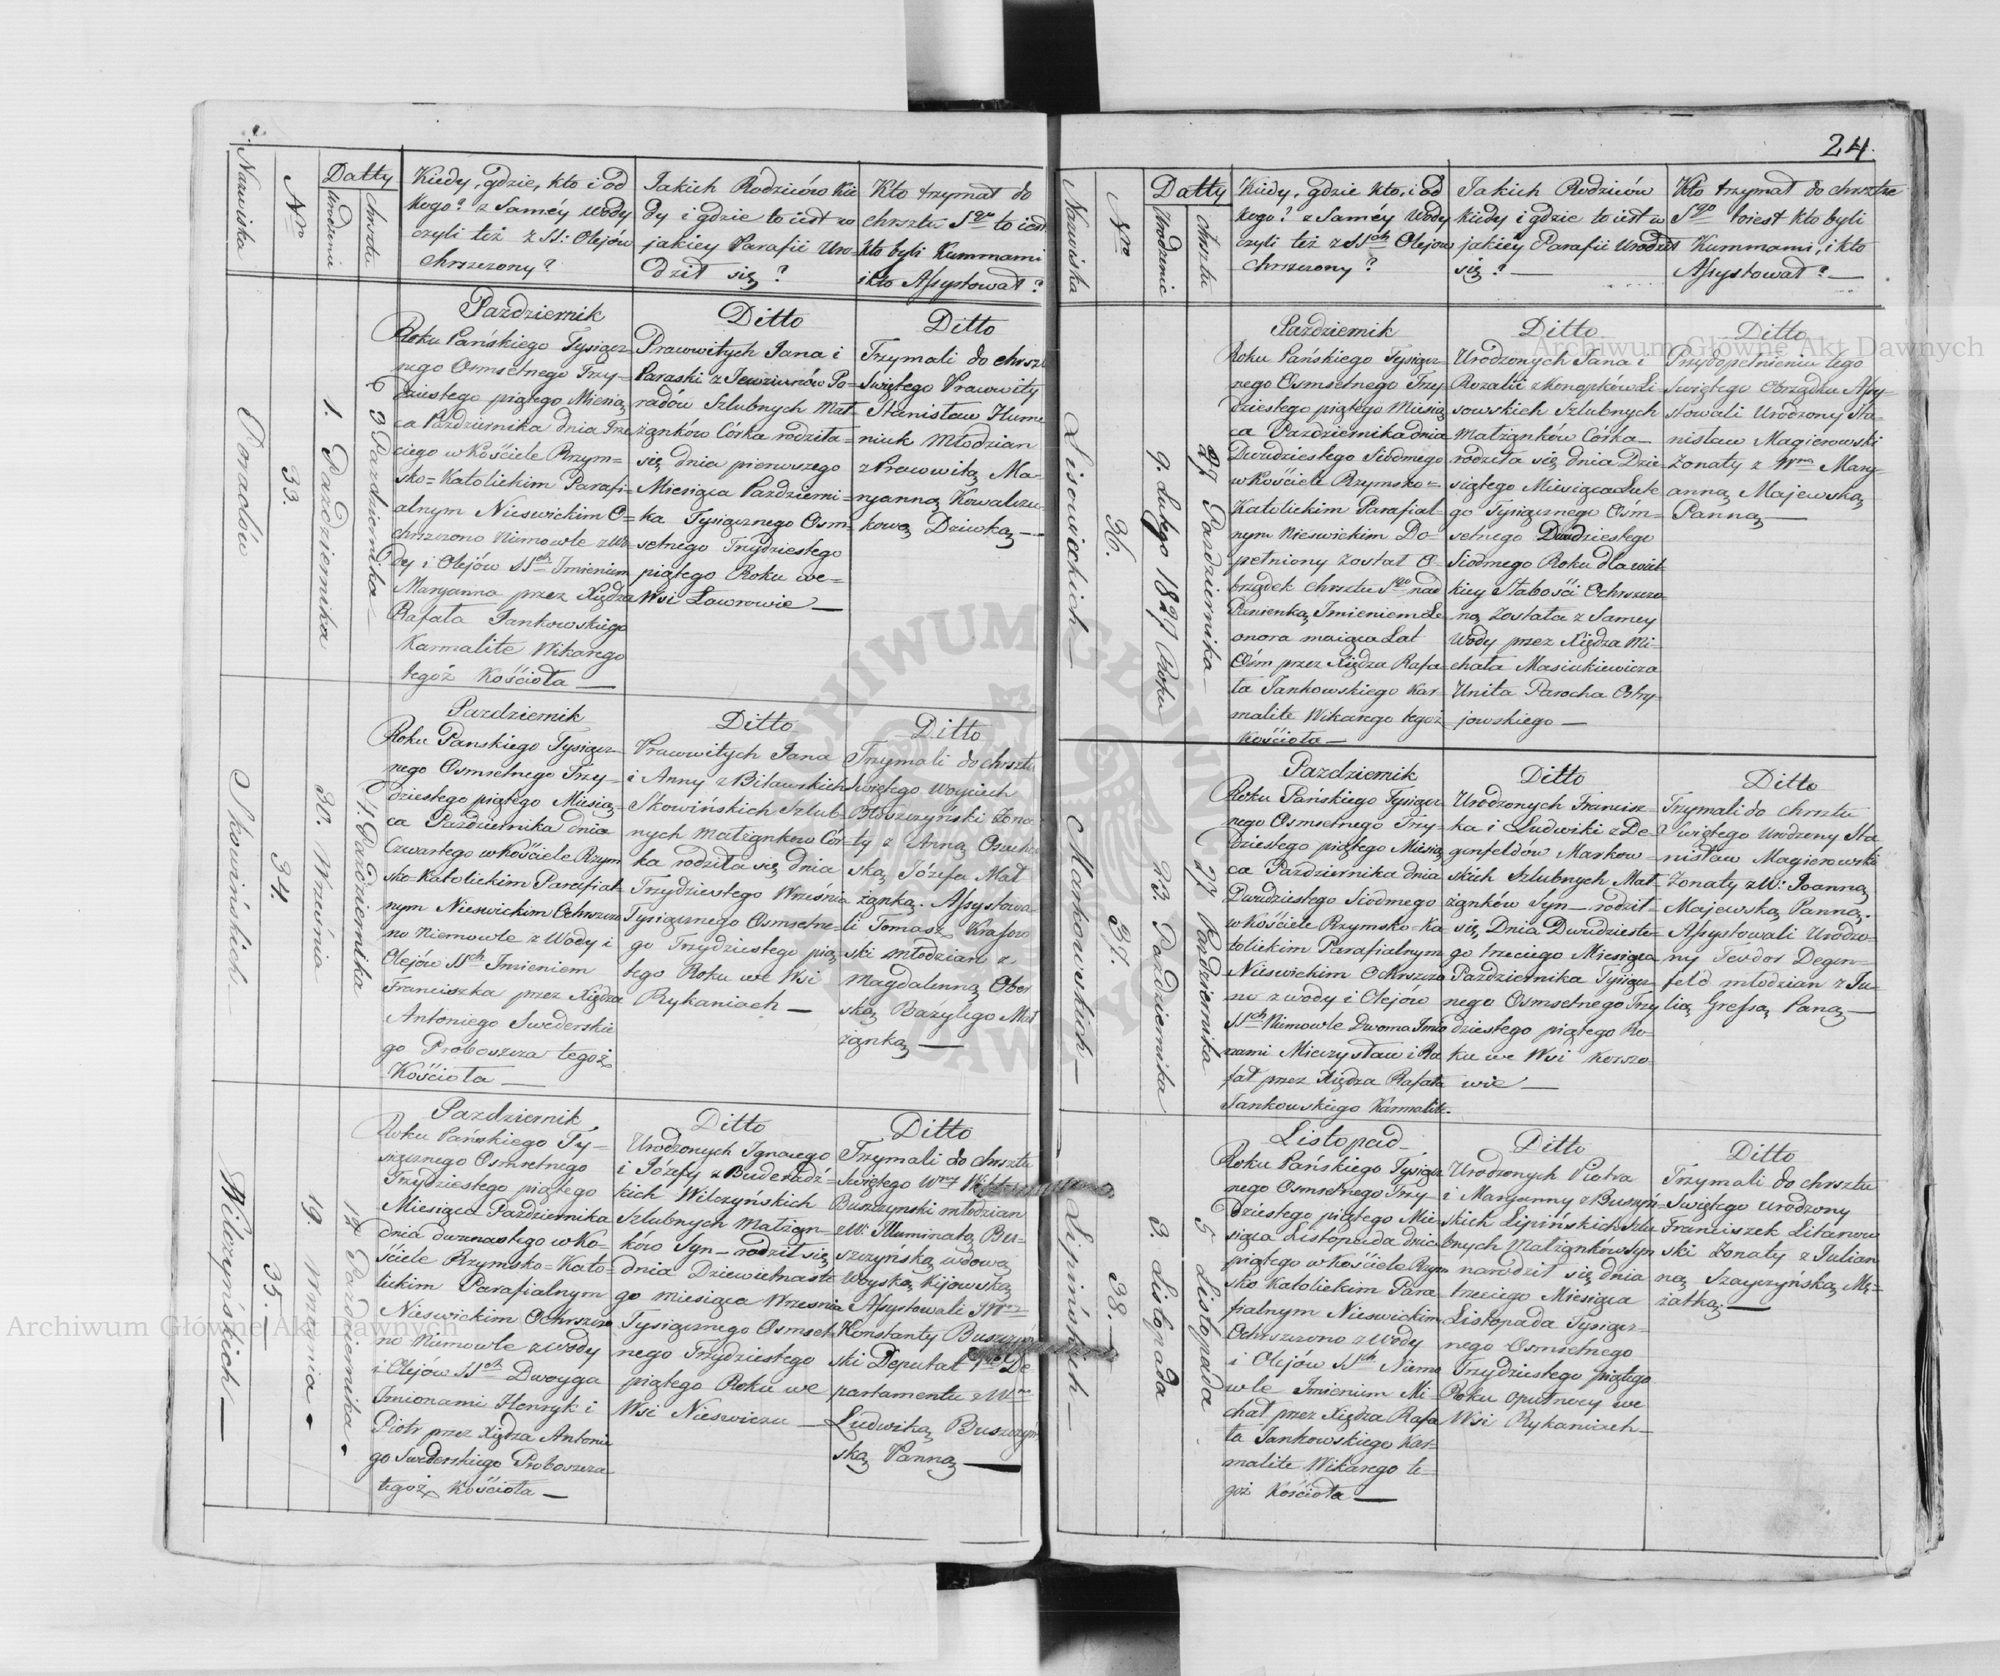 Nazwiska
Nro
Datty
Urodzenia
Chrztu
Kiedy, gdzie, kto i od
kogo? z Saméy Wody
czyli też z SS: Olejów
chrzczony?
Jakich Rodziców Kie
dy i gdzie to iest w
jakiey Parafii Uro=
dził się?
Kto trzymał do
chrsztu Sgo to iest
kto byli Kummami
i kto Assystował?
Poradów
33.
1. Pazdziernika
3 Pazdziernika
Pazdziernik
Roku Pańskiego Tysiącz
nego Osmsetnego Trzy-
dziestego piątego Miesią
ca Pazdziernika dnia Trze
ciego w Kościele Rzym=
sko=Katolickim Parafi=
alnym Nieswickim O=
chrzczono Niemowle z Wo=
dy i Olejów SSch Imieniem
Maryanna przez Xiędza
Rafała Jankowskiego
Karmalite Wikarego
tegóż Kościoła —
Ditto
Prawowitych Jana i
Paraski z Po=
radów Szlubnych Mał=
żąnków Córka rodziła=
się dnia pierwszego
Miesiąca Pazdzierni=
ka Tysiącznego Osm=
setnego Trzydziestego
piątego Roku we=
Wsi Ławrowie —
Ditto
Trzymali do chrszt
Świętego Prawowity
Stanisław Hume
niuk Młodzian
z Prawowitą Ma=
ryanną Kowalczu=
kową Dziwką —
Skowińskich.
34.
30. Wrzesnia
4. Pazdziernika
Pazdziernik
Roku Panskiego Tysiącz
nego Osmsetnego Trzy-
dziestego piątego Miesią=
ca Pazdziernika dnia
Czwartego w Kościele Rzym
sko=Katolickim Parafial=
nym Nieswickim Ochrszczo
no Niemowle z Wody i
Olejów SSch Imieniem
Franciszka przez Xiędza
Antoniego Swederskie
go Proboszcza tegoż
Kościoła —
Ditto
Prawowitych Jana
i Anny z Biławskich
Skowińskich Szlub=
nych Małżąnkow Cór=
ka rodziła się dnia
Trzydziestego Wrzesnia
Tysiącznego Osmsetne=
go Trzydziestego pią=
tego Roku we Wsi
Rykaniach —
Ditto
Trzymali do chrsztu
Świętego Woyciech
Błoszczyński Żona
ty z Anną
ską Józefa Mał
żąnką. Assystowa=
li Tomasz Krasow
ski młodzian z
Magdalenną Obor
ską Bazylego Mał
żąnką —
Wilczyńskich —
35. —
19 Wrzesnia
12 Pazdziernika
Pazdziernik
Roku Pańskiego Ty=
siącznego Osmsetnego
Trzydziestego piątego
Miesiąca Pazdziernika
dnia dwunastego w Ko=
ściele Rzymsko=Kato=
lickim Parafialnym
Nieswickim Ochrszczo
no Niemowle z wody
i Olejów SSch Dwoyga
Imionami Henryk i
Piotr przez Xiędza Antonie
go Swederskiego Proboszcza
tegoż Kościoła —
Ditto
Urodzonych Ignacego
i Józefy z
kich Wilczyńskich
Szlubnych Małżąn=
ków Syn — rodził się
dnia Dziewietnaste
go miesiąca Wrzesnia
Tysiącznego Osmset=
nego Trzydziestego
piątego Roku we
Wsi Nieswiczu —
Ditto
Trzymali do chrsztu
Świętego
Buszczynski młodzian
z W. Illuminatą Bu=
szczyńską wdową
Woyską Kijowską
Assystowali
Konstanty Buszczyń
ski Deputat De
partamentu z
Ludwiką Buszczyń
ską Panną —
24.
Nazwiska
Nro
Datty
Urodzenie
chrztu
Kiedy, gdzie kto, i od
kogo? z Saméy Wody
czyli też z SSch Olejow
chrzczony?
Jakich Rodziców
kiedy i gdzie to iest w
jakiéy Parafii Urodził
się? —
Kto trzymał do chrsztu
Sgo toiest kto byli
Kummami, i kto
Assystował? —
Lisowickich —
36.
9. Lutego 1827 Roku
27 Pazdziernika
Pazdziernik
Roku Pańskiego Tysiącz
nego Osmsetnego Trzy-
dziestego piątego Miesią
ca Pazdziernika dnia
Dwudziestego Siodmego
w Kościele Rzymsko=
Katolickim Parafial=
nym Nieswickim Do=
pełniony został O=
brządek chrsztu Sgo nad
Panienką Imieniem Le
onora maiąca Lat
Ośm przez Xiędza Rafa
ła Jankowskiego Kar=
malite Wikarego tegoż
Kościoła —
Ditto
Urodzonych Jana i
Rozalii z Konopków Li
sowskich Szlubnych
Małżąnków Córka —
rodziła się dnia Dzie
siątego Miesiąca Lute
go Tysiącznego Osm=
setnego Dwudziestego
Siodmego Roku dla wiel
kiey Słabości Ochrszczo
ną została z Samey
Wody przez Xiędza Mi=
chała Masiukiewicza
Unita Parocha Ostry=
jowskiego —
Ditto
Przy dopełnieniu tego
Świętego Obrządku Assy=
stowali Urodzony Sta=
nisław Magierowski
Żonaty z Mary=
anną Majewską
Panną —
Markowskich —
37.
23. Pazdziernika
27 Pazdziernika
Pazdziernik
Roku Pańskiego Tysiącz
nego Osmsetnego Trzy=
dziestego piątego Miesią
ca Pazdziernika dnia
Dwudziestego Siodmego
w Kościele Rzymsko=Ka=
tolickim Parafialnym
Nieswickim Ochrszczo
no z wody i Olejów
SSch Niemowle Dwoma Imio
nami Mieczysław i Ra
fał przez Xiędza Rafała
Jankowskiego Karmalite.
Ditto
Urodzonych Francisz=
ka i Ludwiki z De=
genfeldów Markow=
skich Szlubnych Mał=
żąnków Syn — rodził=
się Dnia Dwudzieste=
go trzeciego Miesiąca
Pazdziernika Tysiącz=
nego Osmsetnego Trzy
dziestego piątego Ro=
ku we Wsi Korszo=
wie —
Ditto
Trzymali do chrsztu
Świętego Urodzony Sta=
nisław Magierowski
Żonaty z W: Joanną
Majewską Panną.
Assystowali Urodzo=
ny Teodor Degen=
feld młodzian z Ju=
lią Panną —
Lipińskich —
38. —
3. Listopada
5 Listopada
Listopad
Roku Pańskiego Tysiącz
nego Osmsetnego Trzy-
dziestego piątego Mie=
siąca Listopada dnia
piątego w Kościele Rzym
sko Katolickim Para=
fialnym Nieswickim
Ochrszczono z Wody
i Olejów SSch Niemo
wle Imieniem Mi=
chał przez Xiędza Rafa
ła Jankowskiego Kar=
malite Wikarego te=
goż Kościoła —
Ditto
Urodzonych Piotra
i Maryanny z Buszyń=
skich Lipińskich Szlu=
bnych Małżąnków Syn
narodził się dnia
trzeciego Miesiąca
Listopada Tysiącz=
nego Osmsetnego
Trzydziestego piątego
Roku opułnocy we
Wsi Rykaniach —
Ditto
Trzymali do chrsztu
Świętego Urodzony
Franciszek Litanow
ski Żonaty z Julian
ną Szayczyńską Mę=
żatką —
Archiwum Główne Akt Dawnych
Archiwum Główne Akt Dawnych